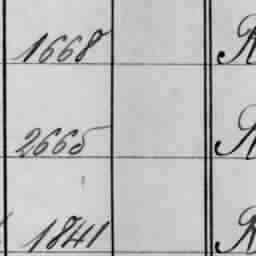 1668
2665
1841